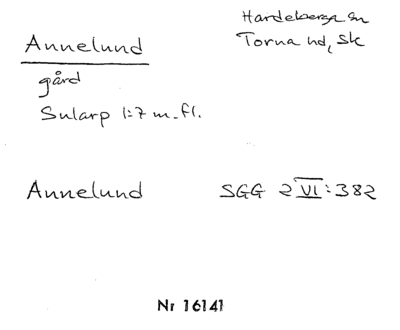 Annelund
Hardeberga sn
Torna hd, Sk
gård
Sularp 1:7 m.fl.
Annelund SGG 2 VI: 382
Nr 16141